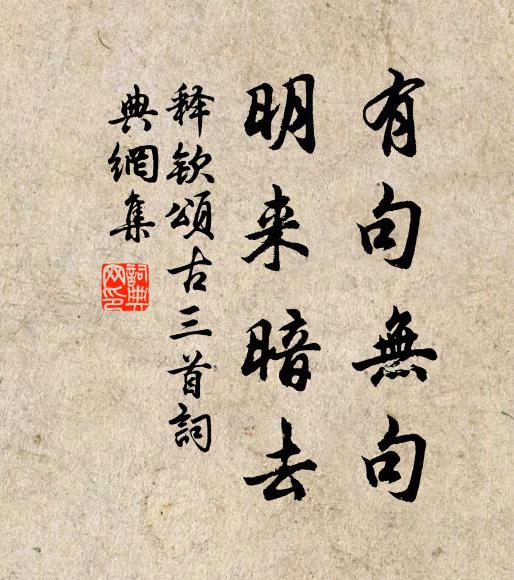 有句無句
明来暗去
释钦頌古三首詞
典網集
詞典网印